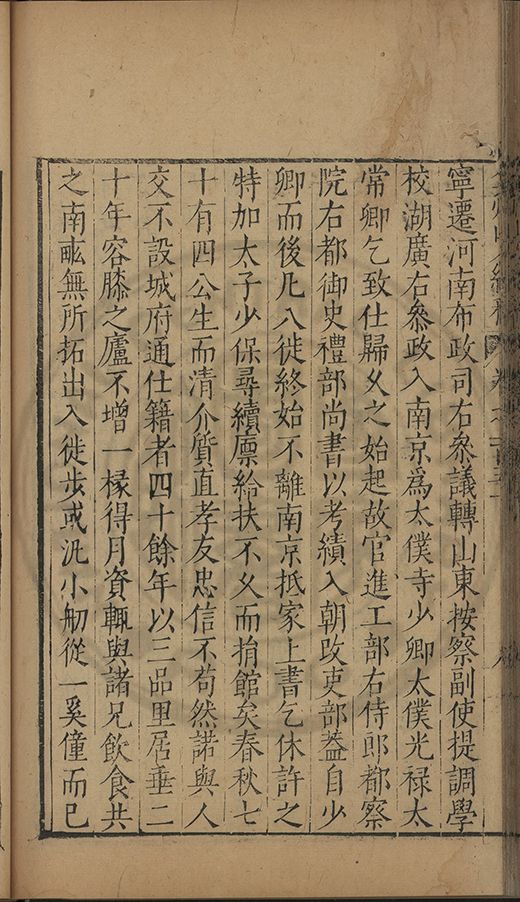 寧遷河南布政司右叅議轉山東按察副使提調學
校湖廣右叅政入南京爲太僕寺少卿太僕光禄太
常卿乞致仕歸久之始起故官進工部右侍郎都察
院右都御史禮部尚書以考績入朝改吏部葢自少
卿而後凡八徙終始不離南京抵家上書乞休許之
特加太子少保尋續廪給扶不久而捐館矣春秋七
十有四公生而清介質直孝友忠信不苟然諾與人
交不設城府通仕籍者四十餘年以三品里居垂二
十年容膝之廬不增一椽得月資輒與諸兄飲食共
之南畝無所拓出入徙步或汎小舠從一奚僮而已